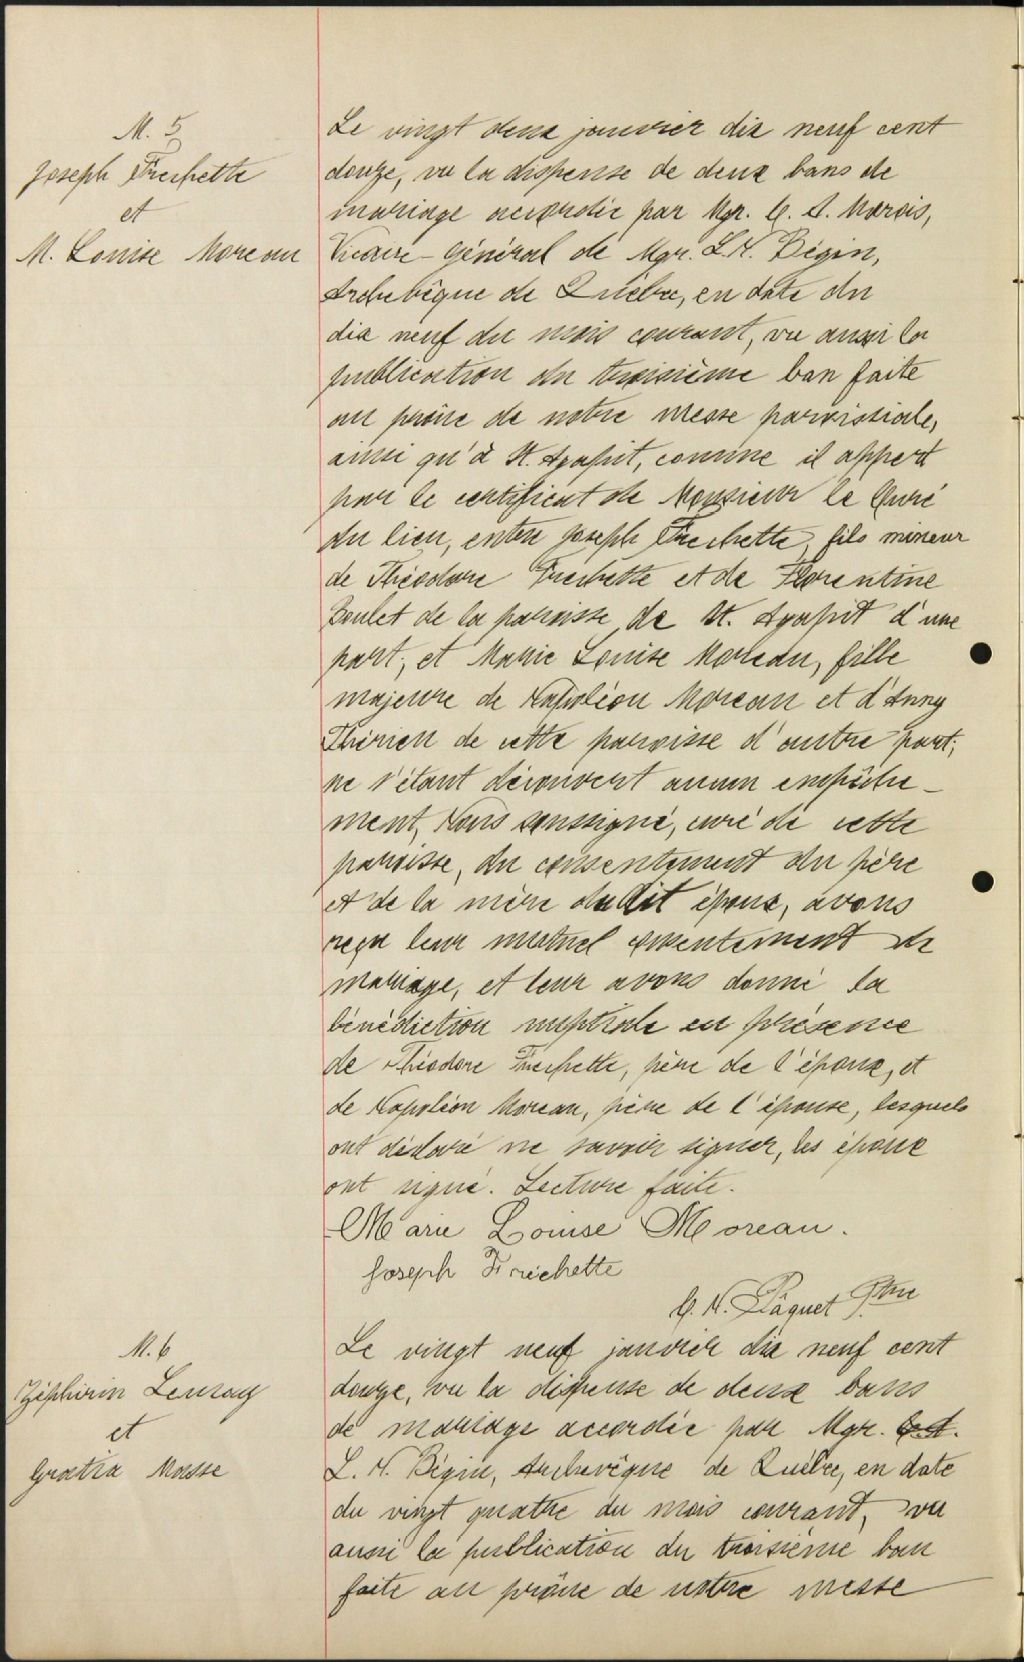 M. 5
Joseph Frechette
et
M. Louise Moreau
Le vingt deux janvier dix neuf cent
douze, vu la dispense de deux bans de
mariage accordée par Mgr. C. A. Marois,
Vicaire-Général de Mgr. L. N. Bégin,
Archevêque de Québec, en date du
dix neuf du mois courant, vu aussi la
publication du troisième ban faite
au prône de notre messe paroissiale,
ainsi qu'à St. Agapit, comme il appert
par le certificat de Monsieur le Curé
du lieu, entre Joseph Frechette, fils mineur
de Théodore Frechette et de Florentine
Boulet de la paroisse de St. Agapit d'une
part; et Marie Louise Moreau, fille
majeure de Napoléon Moreau et d'Anny
Thérien de cette paroisse d'autre part;
ne s'étant découvert aucun empêche-
ment, Nous soussigné, curé de cette
paroisse, du consentement du père
et de la mère du dit époux, avons
reçu leur mutuel consentement de
mariage, et leur avons donné la
bénédiction nuptiale en présence
de Théodore Frechette, père de l'époux, et
de Napoléon Moreau, père de l'épouse, lesquels
ont déclaré ne savoir signer, les époux
ont signé. Lecture faite.
Marie Louise Moreau.
Joseph Fréchette
C. N. Pâquet Ptre
M. 6
Zéphirin Lemay
et
Gratia Masse
Le vingt neuf janvier dix neuf cent
douze, vu la dispense de deux bans
de mariage accordée par Mgr. C. A.
L. N. Bégin, Archevêque de Québec, en date
du vingt quatre du mois courant, vu
aussi la publication du troisième ban
faite au prône de notre messe